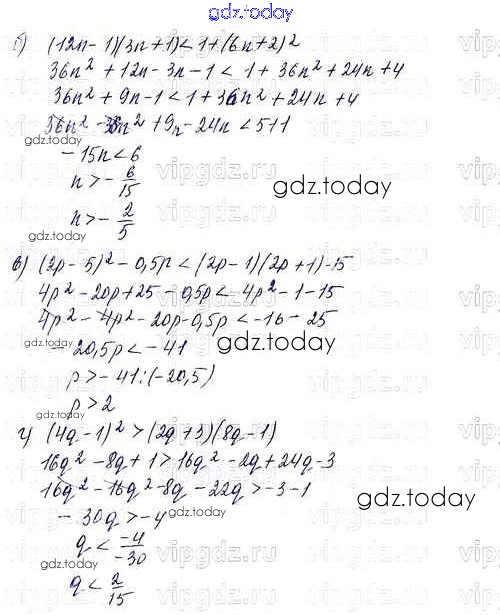 gdz.today
б) (12n-1)(3n+1)<1+(6n+2)²
36n²+12n-3n-1<1+36n²+24n+4
36n²+9n-1<1+36n²+24n+4
36n²-36n²+9n-24n<5+1
-15n<6
n>-6/15
gdz.today
n>-2/5
gdz.today
в) (2p-5)²-0,5p<(2p-1)(2p+1)-15
4p²-20p+25-0,5p<4p²-1-15
4p²-4p²-20p-0,5p<-16-25
-20,5p<-41
gdz.today
p>-41:(-20,5)
p>2
gdz.today
г) (4q-1)²>(2q+3)(8q-1)
16q²-8q+1>16q²-2q+24q-3
16q²-16q²-8q-22q>-3-1
gdz.today
-30q>-4
gdz.today
q<-4/-30
q<2/15
vipgdz.ru